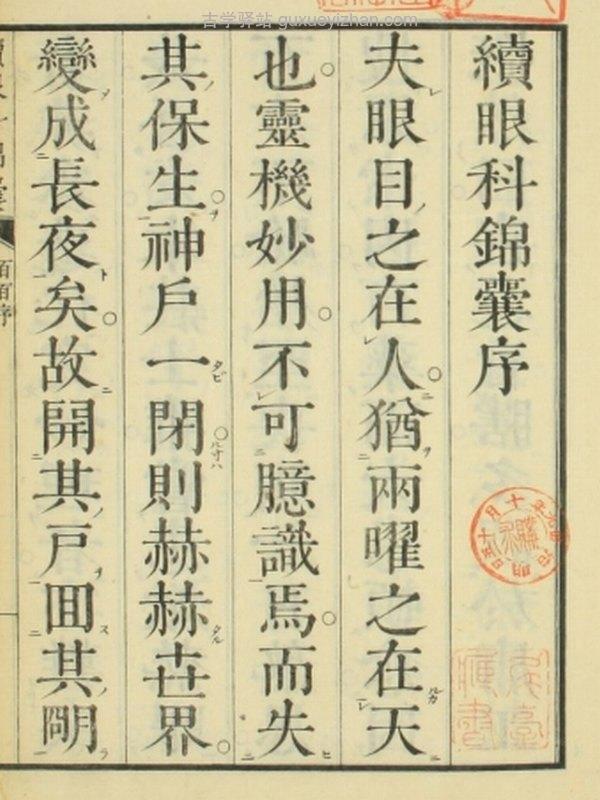 古学驿站 guxueyizhan.com
續眼科錦囊序
夫眼目之在人猶兩曜之在天
也靈機妙用不可臆識焉而失
其保生神戶一閉則赫赫世界
變成長夜矣故開其戸回其明